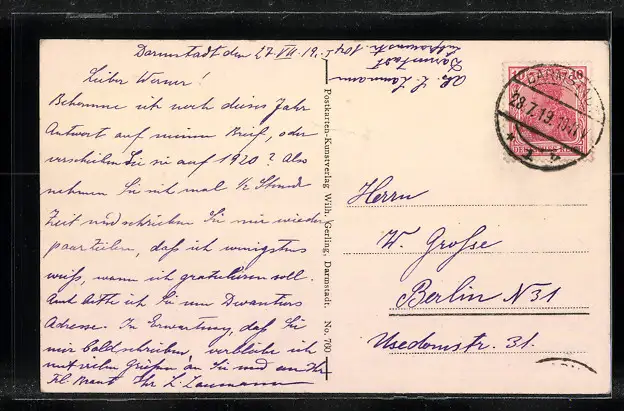 Darmstadt den 27 VII 19.
Lieber Werner!
Bekomme ich noch dieses Jahr
Antwort auf meinen Brief, oder
verschieben Sie sie auf 1920? Also
nehmen Sie sich mal ½ Stunde
Zeit und schreiben Sie mir wieder
paar Zeilen, daß ich wenigstens
weiß, wann ich gratulieren soll.
Auch bitte ich Sie um
Adresse. In Erwartung, daß Sie
mir bald schreiben, verbleibe ich
mit vielen Grüßen an Sie und an Ihr
Frl. Braut Ihr L. Laumann
Abs. L. Laumann
Darmstadt
104
Postkarten-Kunstverlag Wilh. Gerling, Darmstadt. No. 760
10 10
DARMSTADT
28.7.19.
Herrn
W. Große
Berlin N 31
Usedomstr. 31.